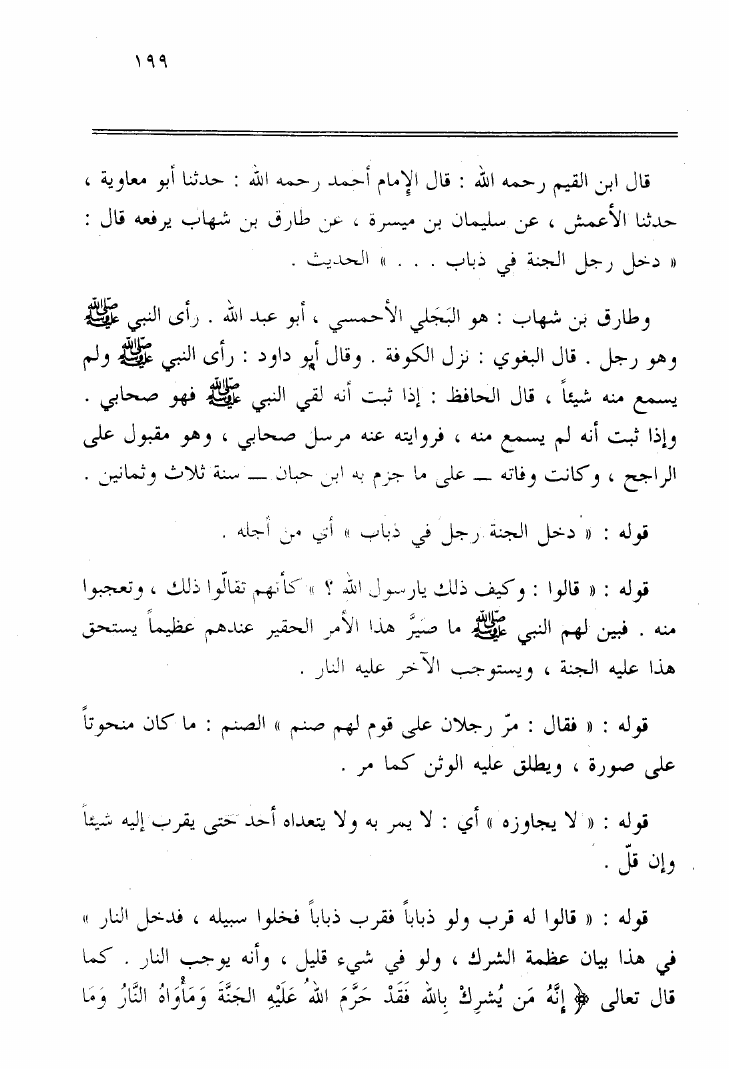 ١٩٩
قال ابن القيم رحمه الله : قال الإمام أحمد رحمه الله : حدثنا أبو معاوية ،
حدثنا الأعمش ، عن سليمان بن ميسرة ، عن طارق بن شهاب يرفعه قال :
« دخل رجل الجنة في ذباب . . . » الحديث .
وطارق بن شهاب : هو البَجَلي الأحمسي ، أبو عبد الله . رأى النبي ﷺ
وهو رجل . قال البغوي : نزل الكوفة . وقال أبو داود : رأى النبي ﷺ ولم
يسمع منه شيئاً ، قال الحافظ : إذا ثبت أنه لقي النبي ﷺ فهو صحابي .
وإذا ثبت أنه لم يسمع منه ، فروايته عنه مرسل صحابي ، وهو مقبول على
الراجح ، وكانت وفاته — على ما جزم به ابن حبان — سنة ثلاث وثمانين .
قوله : « دخل الجنة رجل في ذباب » أي من أجله .
قوله : « قالوا : وكيف ذلك يارسول الله ؟ » كأنهم تقالّوا ذلك ، وتعجبوا
منه . فبين لهم النبي ﷺ ما صَيَّرَ هذا الأمر الحقير عندهم عظيماً يستحق
هذا عليه الجنة ، ويستوجب الآخر عليه النار .
قوله : « فقال : مرّ رجلان على قوم لهم صنم » الصنم : ما كان منحوتاً
على صورة ، ويطلق عليه الوثن كما مر .
قوله : « لا يجاوزه » أي : لا يمر به ولا يتعداه أحد حتى يقرب إليه شيئاً
وإن قلّ .
قوله : « قالوا له قرب ولو ذباباً فقرب ذباباً فخلوا سبيله ، فدخل النار »
في هذا بيان عظمة الشرك ، ولو في شيء قليل ، وأنه يوجب النار . كما
قال تعالى ﴿ إِنَّهُ مَن يُشرِكْ بِالله فَقَدْ حَرَّمَ اللهُ عَلَيْهِ الجَنَّةَ وَمَأْوَاهُ النَّارُ وَمَا